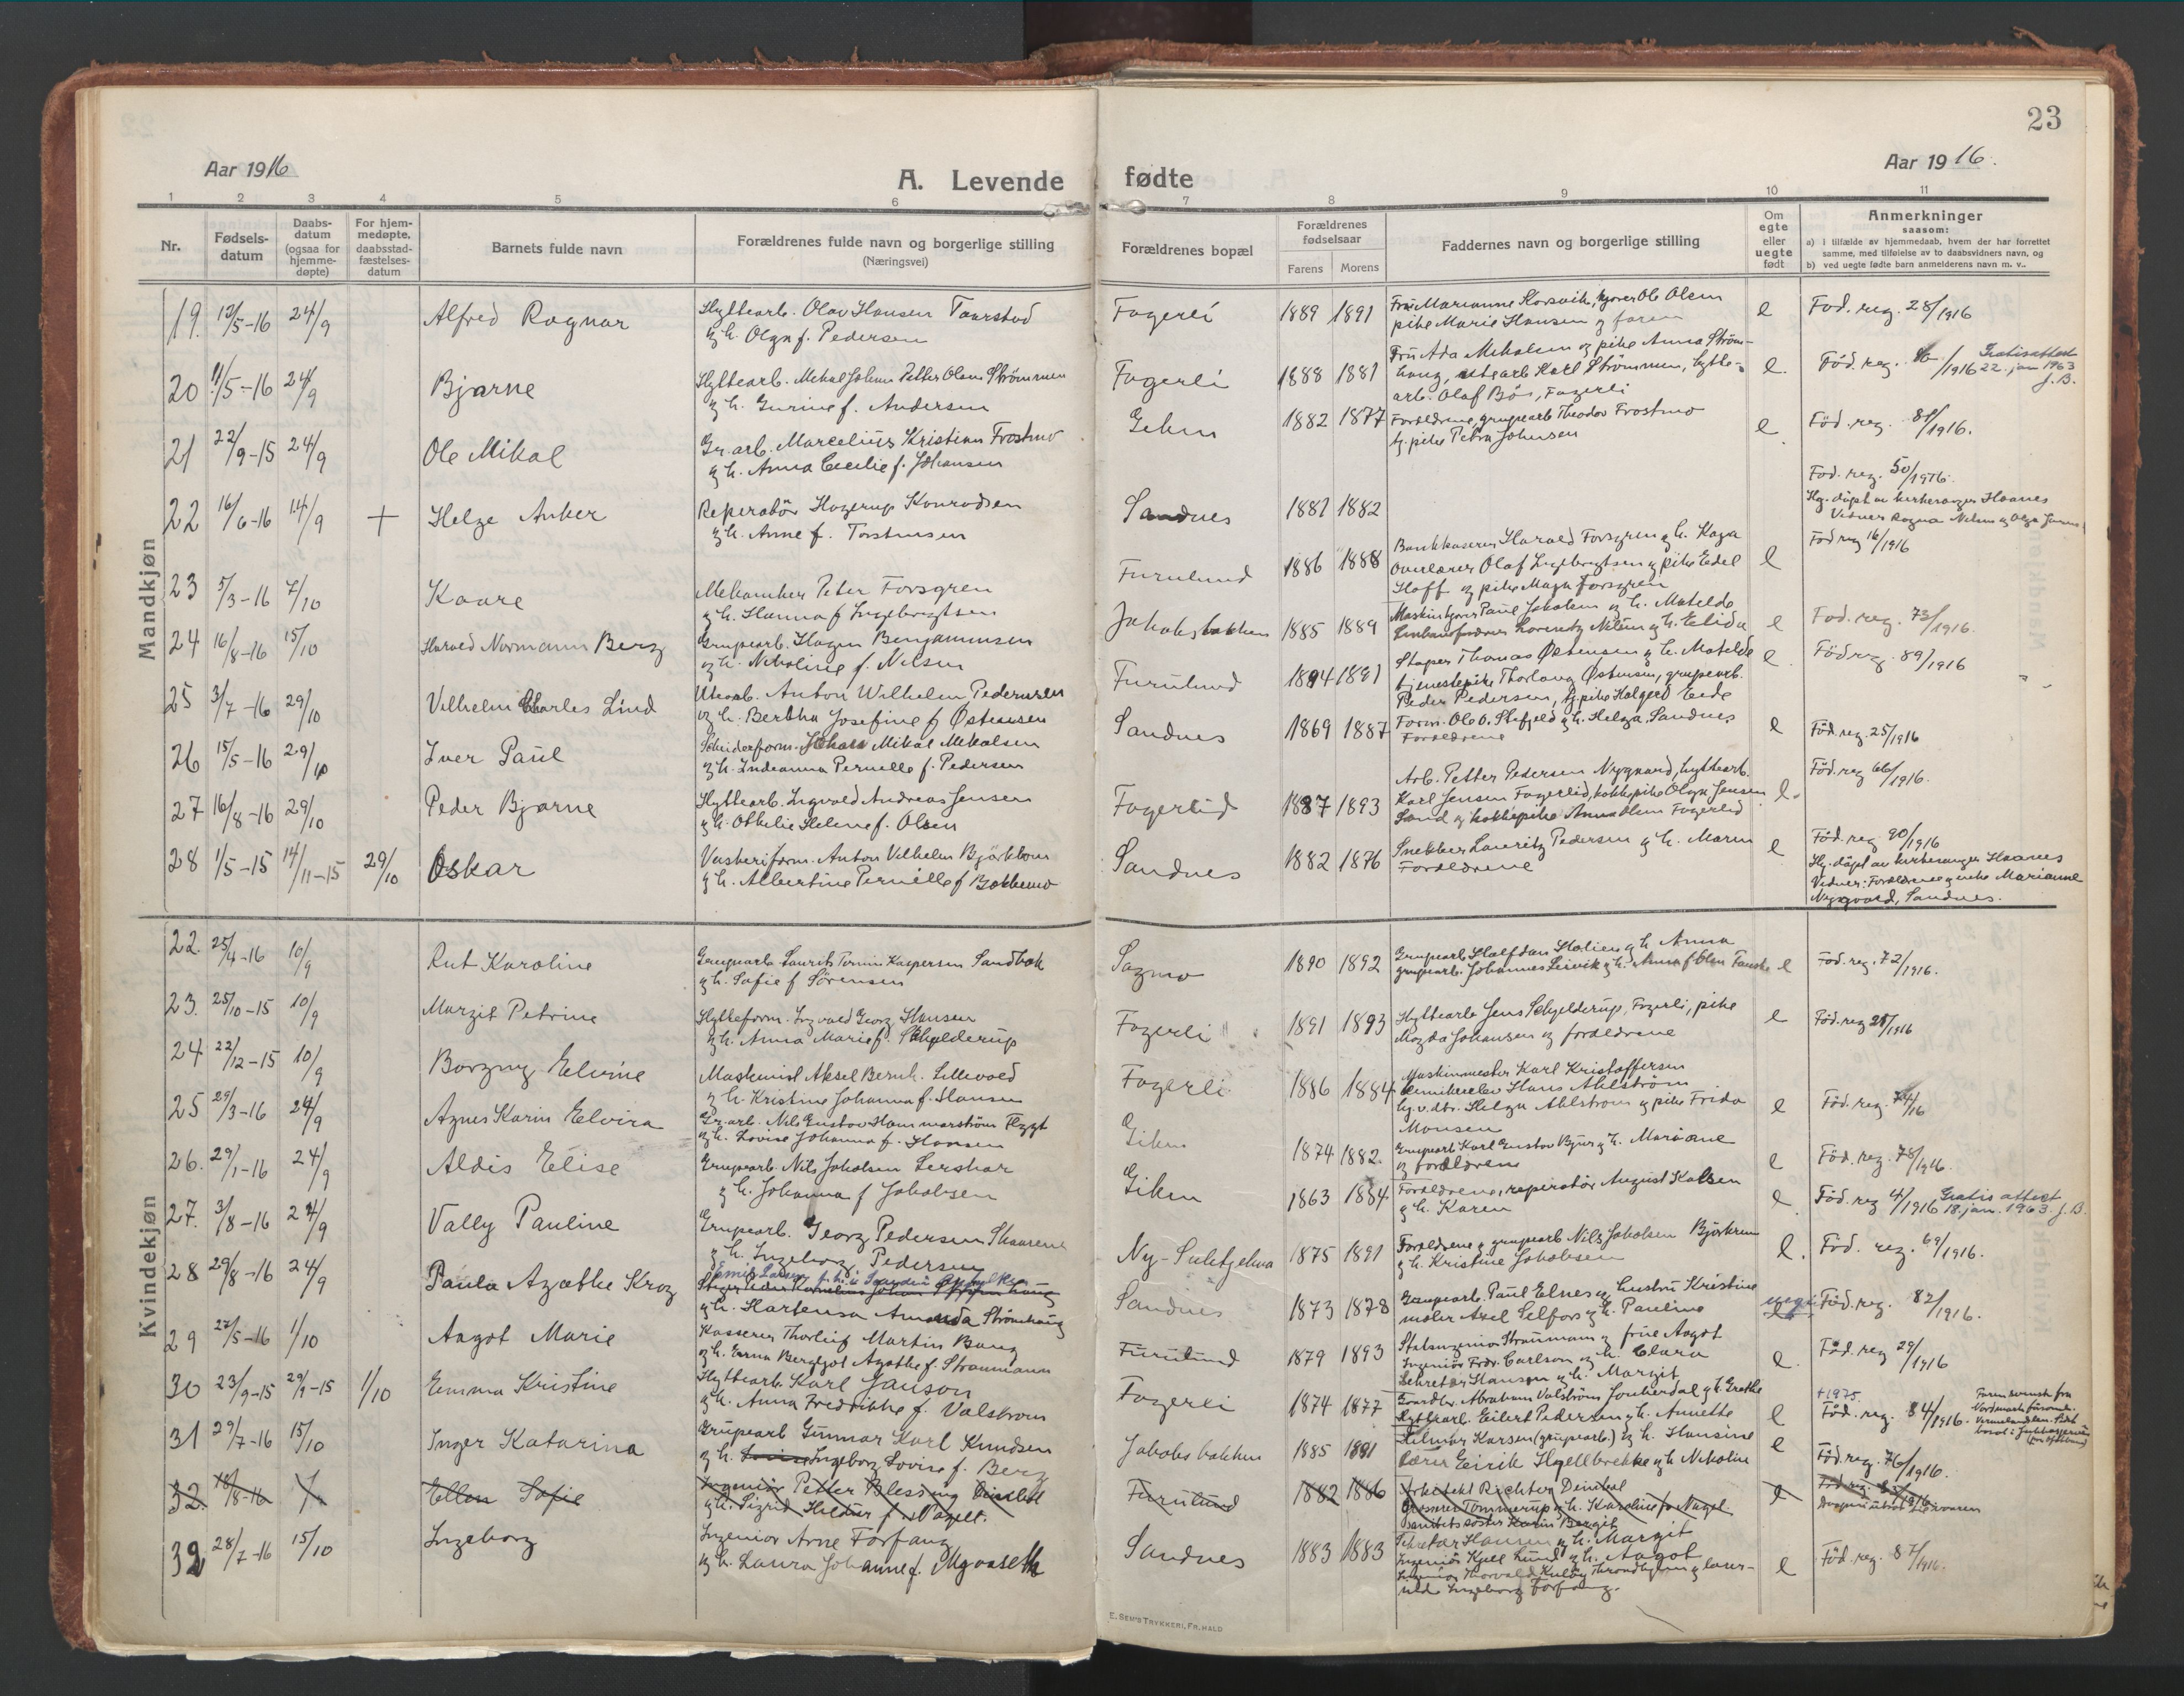 23
Aar 1916
A. Levende fødte
Aar 1916.
1 2 3 4 5 6 7 8 9 10 11
Nr.
Fødsels-
datum
Daabs-
datum
(ogsaa for
hjemme-
døpte)
For hjem-
medøpte,
daabsstad-
fæstelses-
datum
Barnets fulde navn
Forældrenes fulde navn og borgerlige stilling
(Næringsvei)
Forældrenes bopæl
Forældrenes
fødselsaar
Farens Morens
Faddernes navn og borgerlige stilling
Om
egte
eller
uegte
født
Anmerkninger
saasom:
a) i tilfælde av hjemmedaab, hvem der har forrettet
samme, med tilføielse av to daabsvidners navn, og
b) ved uegte fødte barn anmelderens navn m. v..
Mandkjøn
19. 12/5-16 24/9 Alfred Ragnar
Hyttearb. Olav Hansen Taarstad
og h. Olga f. Pedersen
Fagerli 1889 1891
Fru Marianne Korsvik, kjører Ole Olsen
pike Marie Hansen og faren
e Fød. reg. 28/1916
20 11/5-16 24/9 Bjarne
Hyttearb. Mikal Johan Petter Olsen Strømmen
og h. Gurine f. Andersen
Fagerli 1888 1881
Fru Ada Mikalsen og pike Anna Strøm-
haug, utearb Karl Strømmen, hytte-
arb. Olaf Bøs, Fagerli
e. Fød. reg. 16/1916 Gratisattest
22. jan 1963
J.B.
21 22/9-15 24/9 Ole Mikal
Gr. arb. Marcelius Kristian Frostmo
og h. Anna Cecilie f. Johansen
Giken 1882 1877
Forældrene, grupearb Theodor Frostmo
og pike Petra Johnsen
e. Fød. reg. 81/1916.
22 16/6-16 14/9 + Helge Anker
Reparatør Hagerup Konradsen
og h. Anne f. Torstensen
Sandnes 1881 1882
Fød. reg. 50/1916.
Hj. døpt av kirkesanger Haanes
Vidner Ragna Nilsen og Olga
23 5/3-16 7/10 Kaare
Mekaniker Peter Forsgren
og h. Hanna f Ingebrigtsen
Furulund 1886 1888
Bankkaserer Harald Forsgren og h. Kaga
Overlærer Olaf Ingebrigtsen og pike Edel
Hoff og pike Maga Forsgren
e Fød reg 16/1916
24 16/8-16 15/10 Harald Normann Berg
Grupearb. Hagen Benjaminsen
og h. Nikoline f. Nilsen
Jakobsbakken 1885 1889
Maskinkjører Paul Jakobsen og h. Matelde
Linbaneformann Lorentz Nilsen og h. Elida
e Fød. reg. 73/1916.
25 3/7-16 29/10 Vilhelm Charles Lind
Utearb. Anton Wilhelm Pedersen
og h. Bertha Josefine f Østensen
Furulund 1894 1891
Støper Thomas Østensen og h. Matelde
tjenestepike Thorlaug Østensen, grupearb.
Peder Pedersen, tj.pike Halgerd Eide
e. Fød reg. 89/1916
26 15/5-16 29/10 Iver Paul
Skeiderform. Johan Mikal Mikalsen
og h. Indianna Pernelle f. Pedersen
Sandnes 1869 1887
Form. Ole O. Slefjeld og h. Helga, Sandnes
Forældrene
e Fød. reg. 25/1916
27 16/8-16 29/10 Peder Bjarne
Hyttearb. Ingvald Andreas Jensen
og h. Othelie Helene f. Olsen
Fagerlid 1887 1893
Arb. Petter Pedersen Nygaard, hyttearb.
Karl Jensen Fagerlid, kokkepike Olga Jensen
Sand og kokkepike Anna Olsen Fagerlid
e. Fød. reg 66/1916.
28 1/5-15 14/11-15 29/10 Oskar
Vaskeriform. Anton Vilhelm Bjørkbom
og h. Albertine Pernille f Bakkemo
Sandnes 1882 1876
Snekker Lauritz Pedersen og h. Maren
Forældrene
e Fød. reg 90/1916
Hj. døpt av kirkesanger Haanes
Vidner: Forældrene og enke Marianne
Nygaard, Sandnes.
Kvindekjøn
22. 25/4-16 10/9 Rut Karoline
Grupearb Laurits Tornin Kaspersen Sandbak
og h. Sofie f Sørensen
Sagmo 1890 1892
Grupearb Halfdan Stolien og h. Anna
grupearb. Johannes Leivik og h. Anna f Olsen Fauske
e Fød. reg. 72/1916.
23. 25/10-15 10/9 Margit Petrine
Hytteform. Ingvald Georg Hansen
og h. Anna Marie f. Schjelderup
Fagerli 1891 1893
Hyttearb Jens Schjelderup, Fagerli, pike
Magda Johansen og forældrene
e Fød. reg 25/1916
24 22/12-15 10/9 Borgny Elvine
Maskinist Aksel Bernh. Lillevold
og h. Kristine Johanna f. Hansen
Fagerli 1886 1884
Maskinmester Karl Kristoffersen
kemikerelev Hans Ahlstrøm
hj.v.dtr. Helga Ahlstrøm og pike Frida
Monsen
e Fød. reg. 74/16
25 29/3-16 24/9 Agnes Karin Elvira
Gr. arb. Nils Gustav Hammarstrøm Flygt
og h. Lovise Johanna f. Hansen
Giken 1874 1882.
Grupearb Karl Gustav Bjur og h. Mariane
og forældrene
e Fød. reg. 78/1916.
26. 29/1-16 24/9 Aldis Elise
Grupearb. Nils Jakobsen Lershar
og h. Johanna f Jakobsen
Giken 1863 1884
Forældrene, reparatør August Kalsen
og h. Karen
e Fød. reg 4/1916 Gratis attest
18. jan. 1963. J.B.
27. 3/8-16 24/9 Vally Pauline
Grupearb. Georg Pedersen Skaarene
og h. Ingeborg Pedersen
Ny-Sulitjelma 1875 1891
Forældrene og grupearb Nils Jakobsen Bjørkrem
og h. Kristine Jakobsen
e. Fød. reg. 69/1916.
28 29/8-16 24/9 Paula Agathe Krog
Emil Larsen
og h. Hartensa Amanda Strømhaug
Sandnes 1873 1878
Grupearb. Paul Elnes og hustru Kristine
maler Axel Selfors og h. Pauline
uegte Fød. reg. 82/1916.
29 27/5-16 1/10 Aagot Marie
Kasserer Thorleif Martin Bang
og h. Erna Bergljot Agathe f. Straumann
Furulund 1879 1893
Statsingeniør Straumann og frue Aagot
Ingeniør Frdr. Carlson og h. Clara
Sekretær Hansen og h. Margit
e. Fød. reg 29/1916
30 23/9-15 29/9-15 1/10 Emma Kristine
Hyttearb. Karl Janson
og h. Anna Fredrikke f. Valstrøm
Fagerli 1874 1877
Gaardbr. Abraham Valstrøm Junkerdal og h. Grethe
Hyttearb. Eilert Pedersen og h. Annette
e +1975
Fød. reg. 84/1916.
31 29/7-16 15/10 Inger Katarina
Grupearb Gunnar Karl Knudsen
og h. Ingeborg Lovise f. Berg
Jakobsbakken 1885 1891
Hilmar Karsen (grupearb.) og h. Hansine
Lærer Eirik Hjellbrekke og h. Nikoline
e Fød. reg. 76/1916.
32. 18/8-16 Ellen Sofie
Ingeniør Petter Blessing Deinboll
og h. Sigrid Hildur f. Nagel.
Furulund 1882 1886
Arkitekt Richter Deinboll
Tommerup og h. Karoline f. Nagel
Sanitetssøster Karin Bergit
e
32 28/7-16 15/10 Ingeborg
Ingeniør Arne Forfang
og h. Laura Johanne f.
Sandnes 1883 1883
Sekretær Hansen og h. Margit
Ingeniør Kjell Lund og h. Aagot
Ingeborg Forfang.
e Fød. reg. 87/1916.
E. SEM'S TRYKKERI, FR.HALD